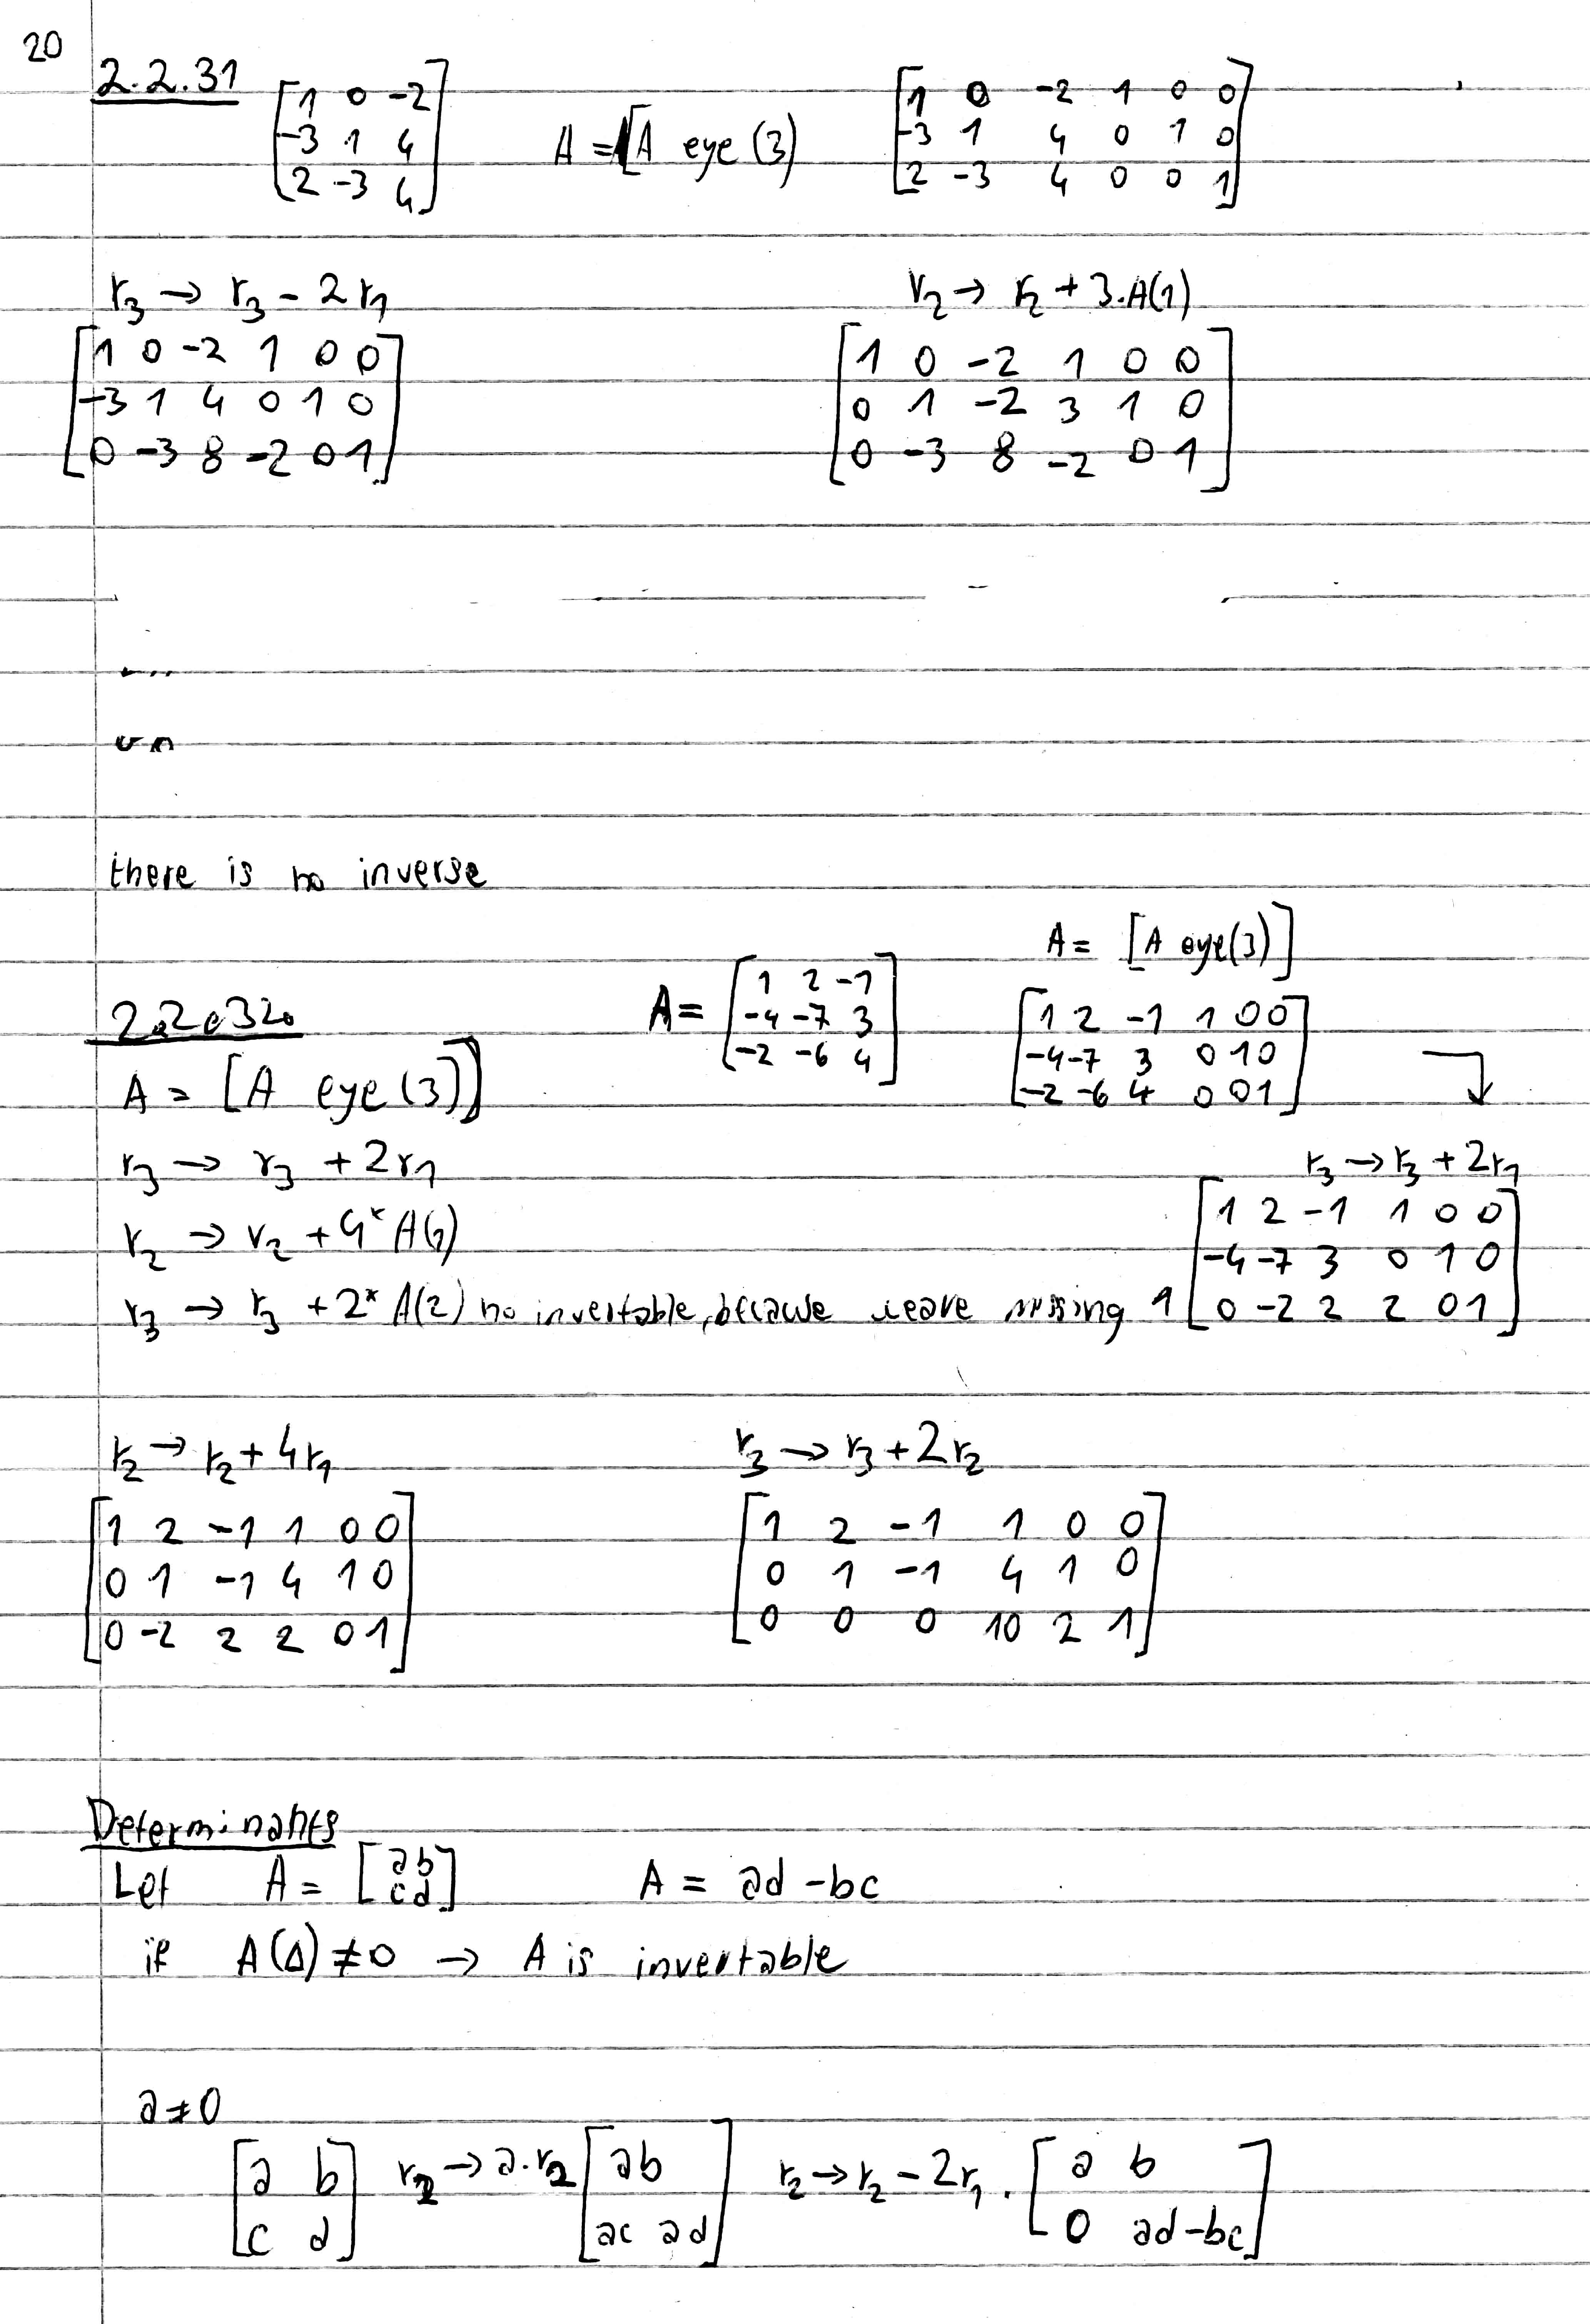 20
2.2.31
[1 0 -2
-3 1 4
2 -3 4]
A = [A eye (3)
[1 0 -2 1 0 0
-3 1 4 0 1 0
2 -3 4 0 0 1]
r3 → r3 - 2r1
[1 0 -2 1 0 0
-3 1 4 0 1 0
0 -3 8 -2 0 1]
r2 → r2 + 3.A(1)
[1 0 -2 1 0 0
0 1 -2 3 1 0
0 -3 8 -2 0 1]
there is no inverse
2.2.32.
A = [A eye (3)]
A = [1 2 -1
-4 -7 3
-2 -6 4]
A = [A eye(3)]
[1 2 -1 1 0 0
-4 -7 3 0 1 0
-2 -6 4 0 0 1]
r3 → r3 + 2r1
r2 → r2 + 4* A(1)
r3 → r3 + 2* A(2) no invertable, because missing 1
r3 → r3 + 2r1
[1 2 -1 1 0 0
-4 -7 3 0 1 0
0 -2 2 2 0 1]
r2 → r2 + 4r1
[1 2 -1 1 0 0
0 1 -1 4 1 0
0 -2 2 2 0 1]
r3 → r3 + 2r2
[1 2 -1 1 0 0
0 1 -1 4 1 0
0 0 0 10 2 1]
Determinants
Let A = [a b
c d] A = ad - bc
if A(Δ) ≠ 0 → A is invertable
a ≠ 0
[a b
c d]
r2 → a.r2
[a b
ac ad]
r2 → r2 - 2r1.
[a b
0 ad-bc]